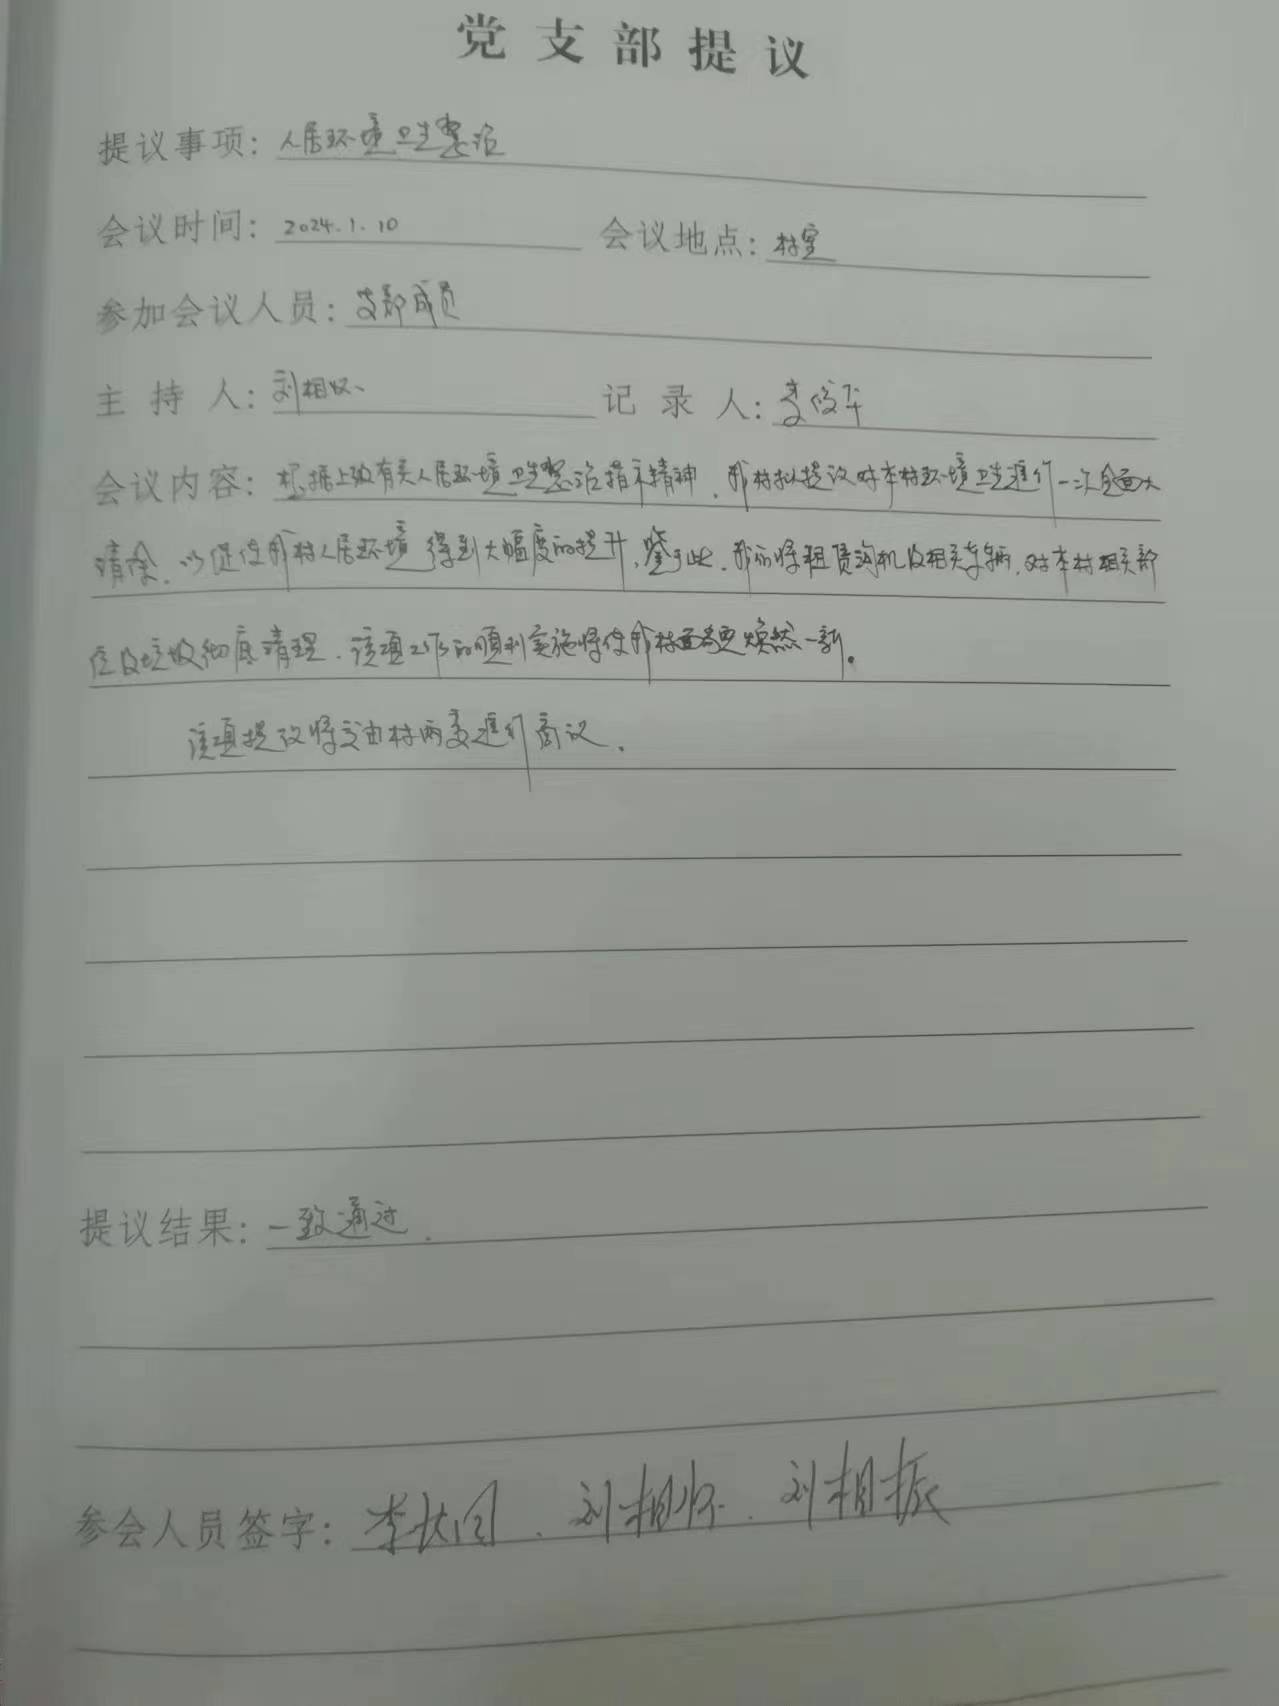 党支部提议
提议事项：人居环境卫生整治
会议时间：2024.1.10 会议地点：村室
参加会议人员：支部成员
主持人：刘相怀 记录人：李俊华
会议内容：根据上级有关人居环境卫生整治指示精神，我村拟提议对本村环境卫生进行一次全面大
清除，以促使我村人居环境得到大幅度的提升，鉴于此，我们将租赁沟机及相关车辆，对本村相关部
位及垃圾彻底清理，该项工作的顺利实施将使我村面容更焕然一新。
该项提议将交由村两委进行商议。
提议结果：一致通过.
参会人员签字：李 刘相怀、刘相振